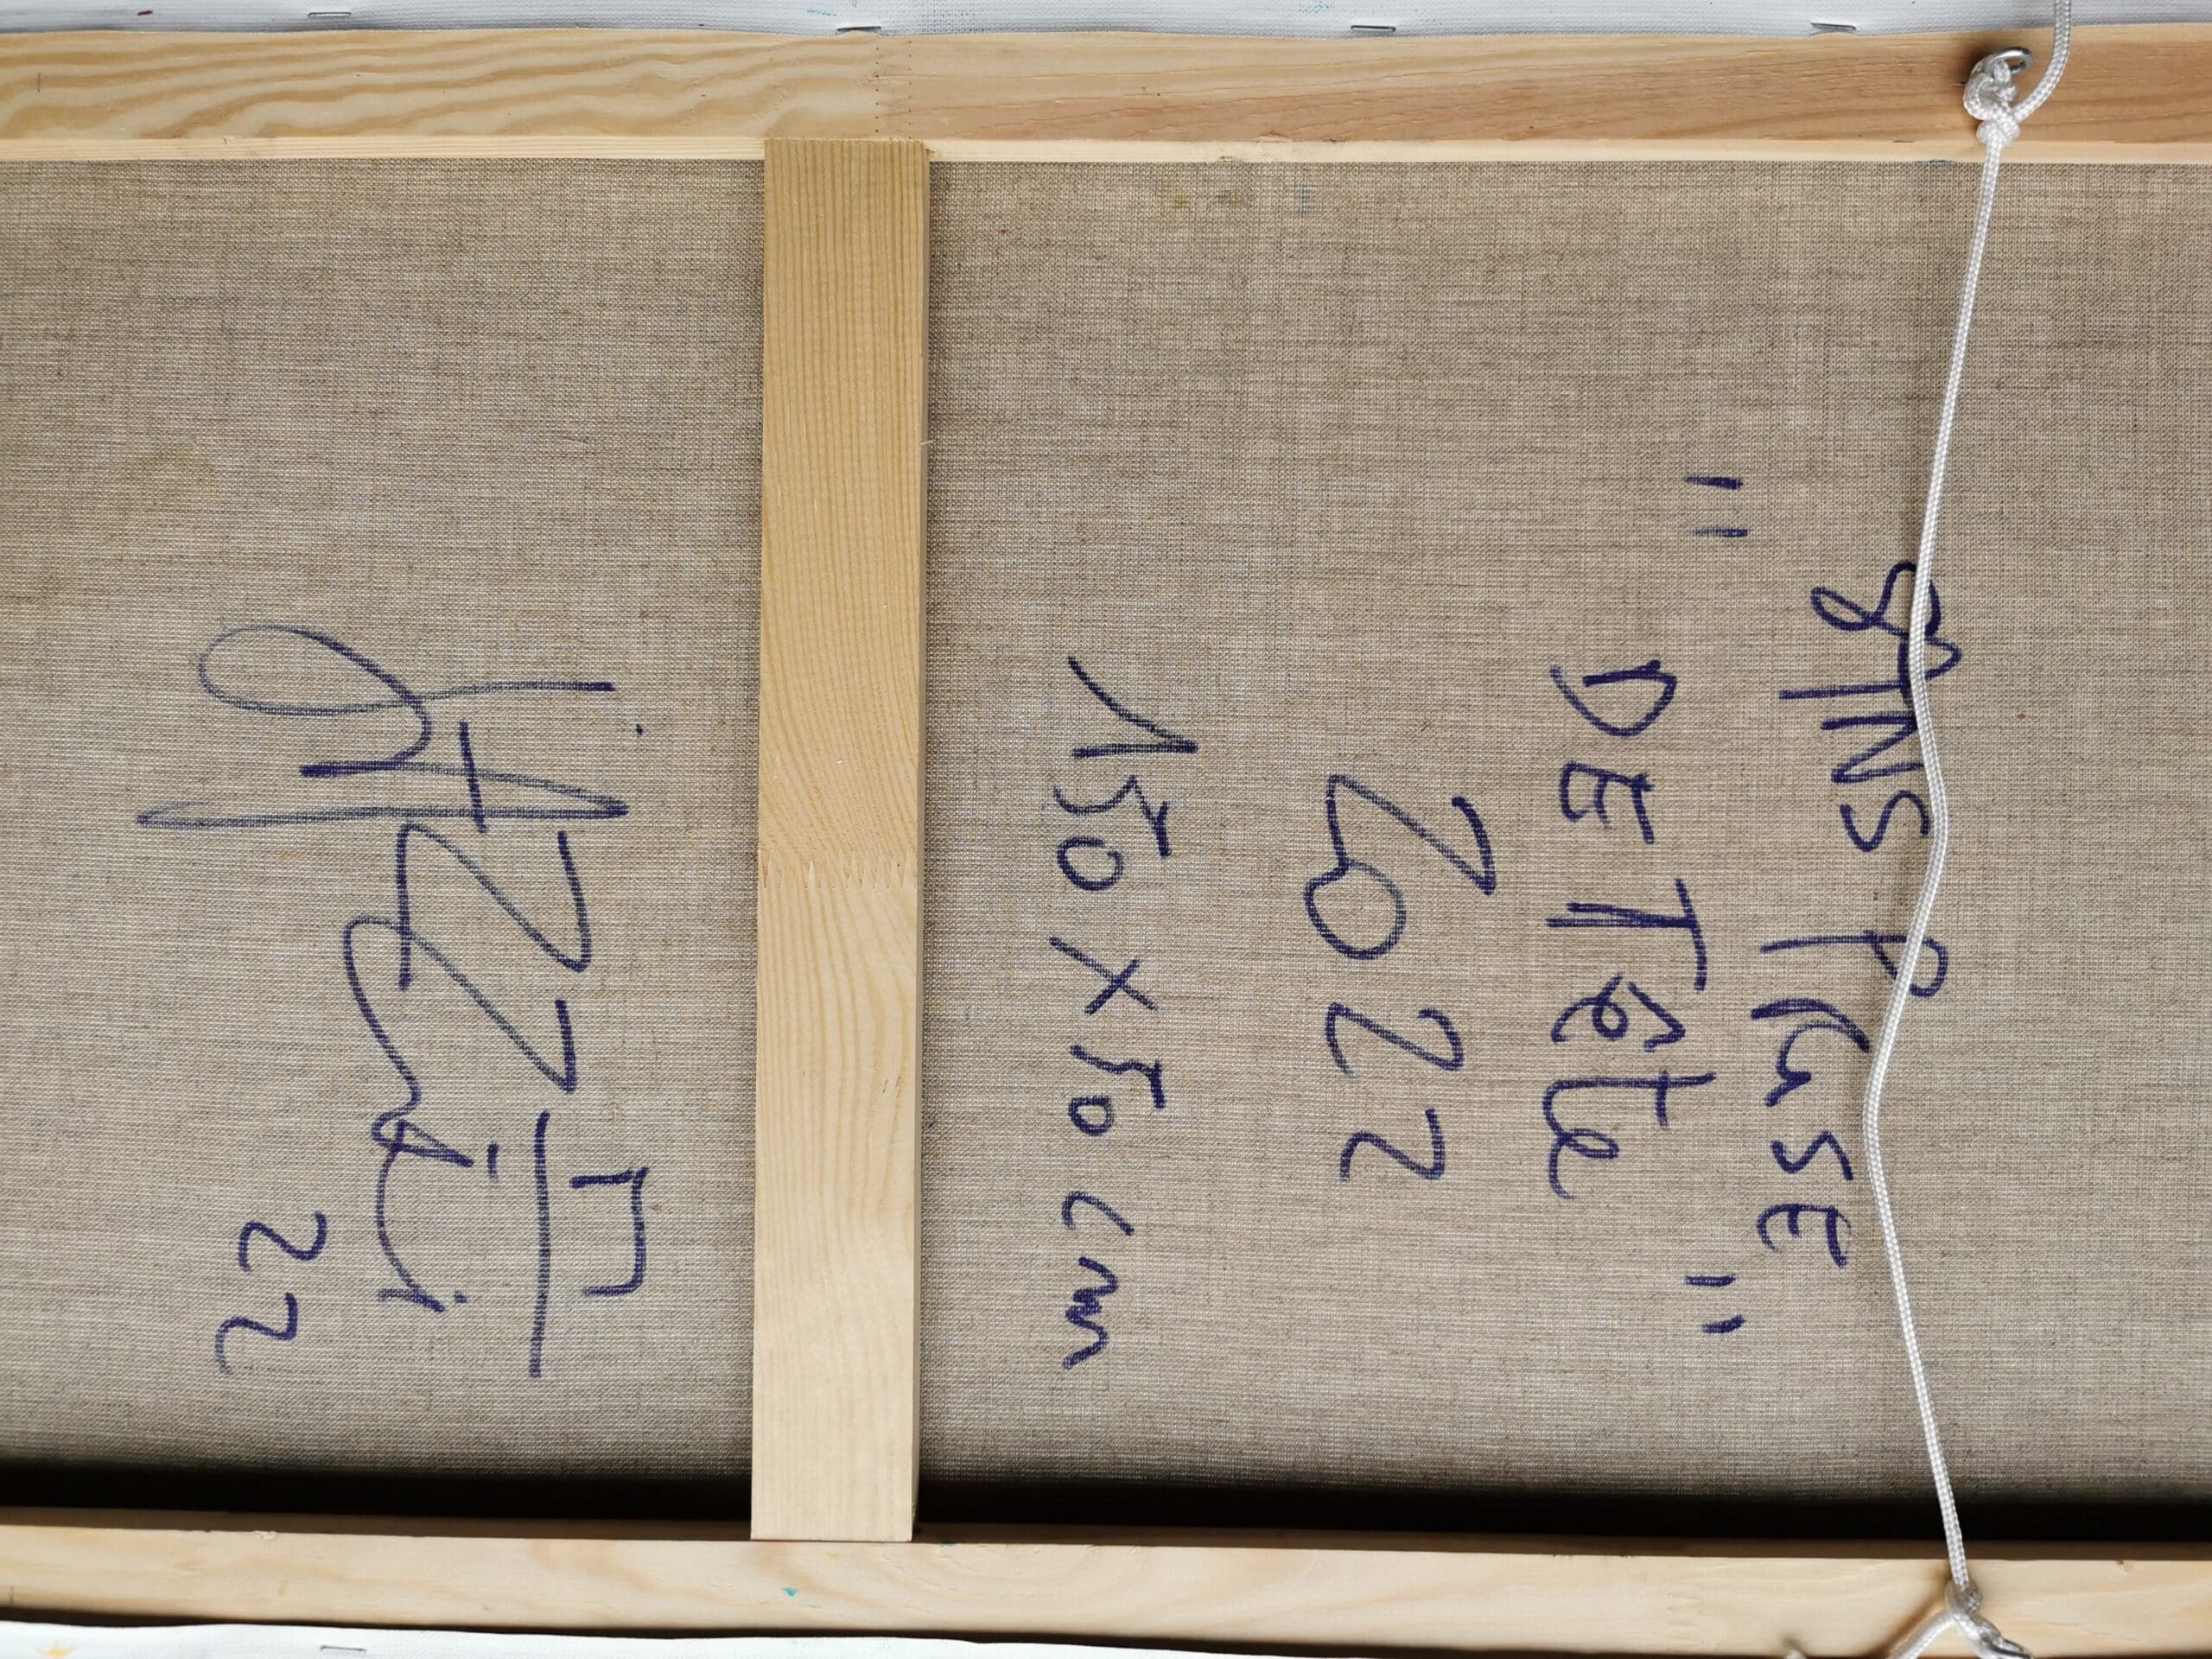 "SANS PAUSE
DE Tête"
2022
150 x 50 cm
22